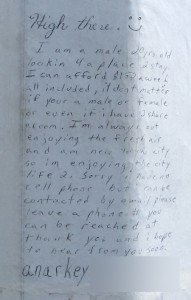 High there. :)
I am a male 20yrs old
lookin 4 a place 2 stay.
I can afford $150 a week
all included, it dosnt matter
if your a male or female
or even if i have 2 share
a room. I'm always out
enjoying the fresh air
and am new to the city
so im enjoying the city
life 2. Sorry i have no
cell phone but i can be
contacted by email please
leave a phone # you
can be reached at
thank you and i hope
to hear from you soon.
anarkey